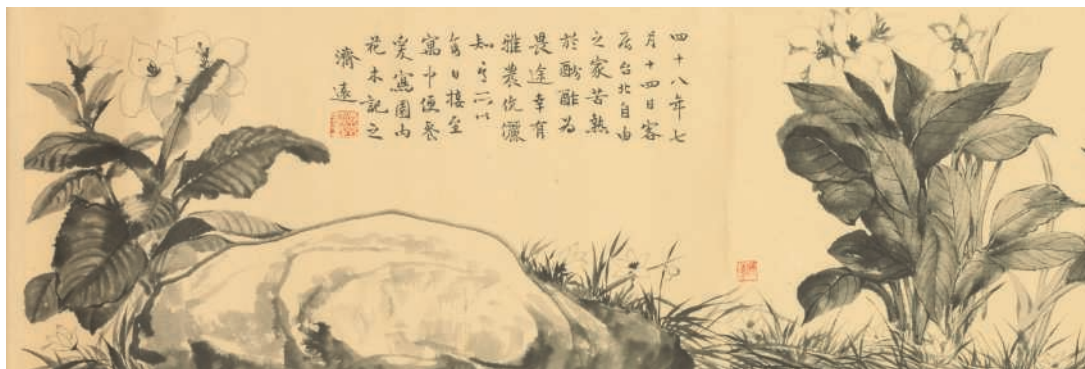 四十八年七
月十四日客
居台北自由
之家苦熱
於酬酢為
畏途幸有
雅農伉儷
知所以
每日接至
寓中便餐
爰寫園內
花木記之
濟遠